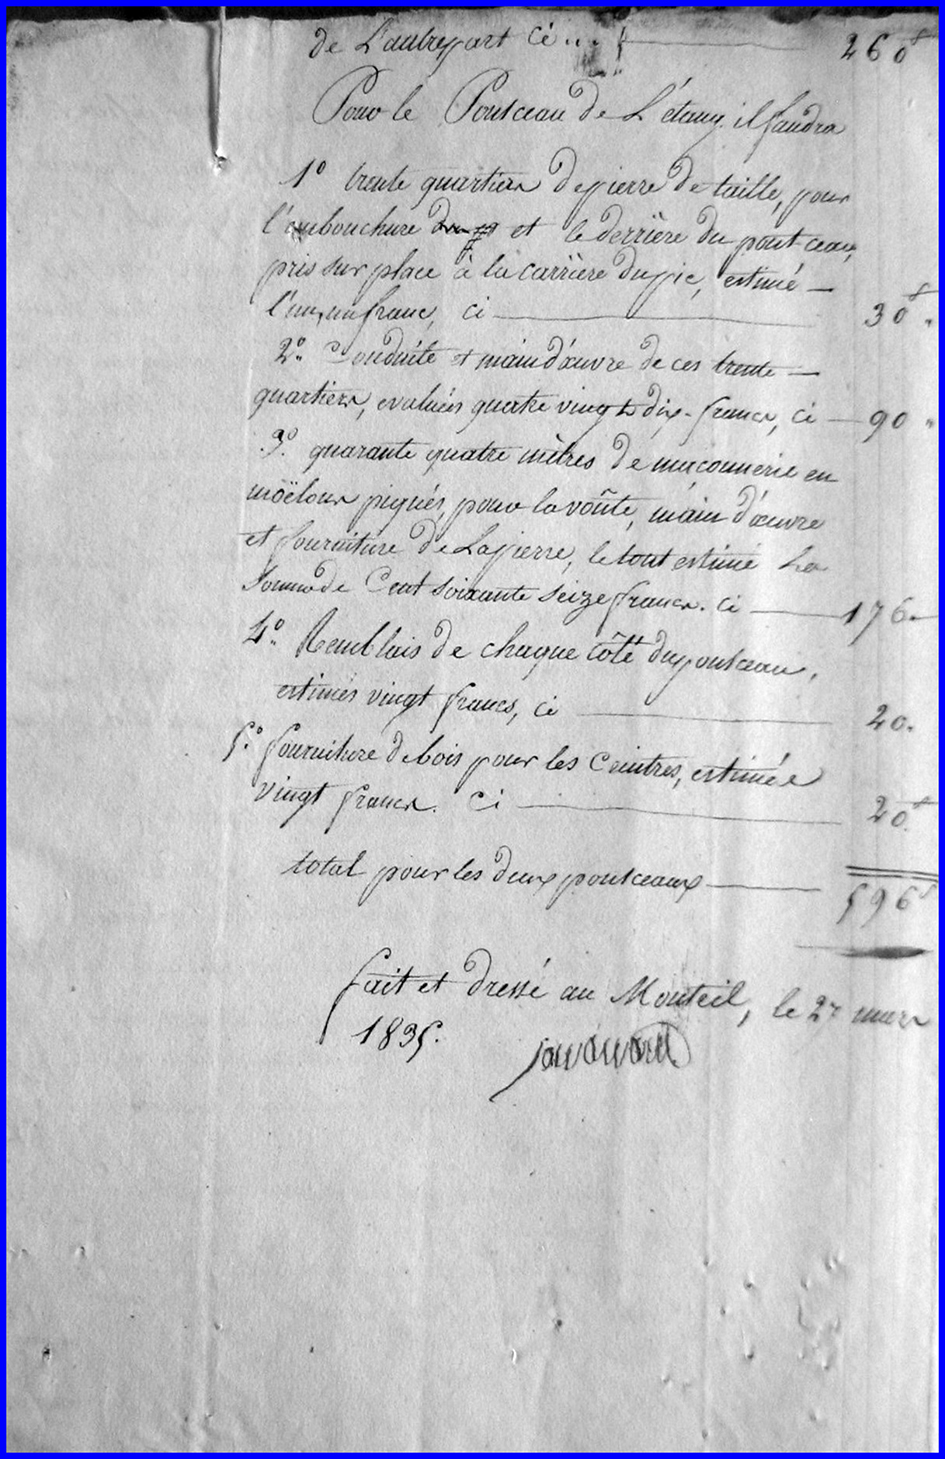 de L'autre part ci ... 260 f
Pour le Ponsceau de L'étang il faudra
1° trente quartiers de pierre de taille, pour
l'embouchure et le derrière du pont ceau,
pris sur place à la carrière du pic, estimé
l'un, un franc, ci 30 f "
2° Conduite et main d'œuvre de ces trente
quartiers, evaluées quatre vingt dix francs, ci 90 "
3° quarante quatre mètres de maconnerie en
moëlons piqués, pour la voûte, main d'œuvre
et fourniture de La pierre, le tout estimé La
Somme de Cent soixante seize francs. ci 176.
4° Remblais de chaque côté du ponsceau,
estimés vingt francs, ci 20.
5° fourniture de bois pour les Ceintres, estimée
vingt francs. Ci 20 f
total pour les deux ponsceaux 596 f
fait et dressé au Monteil, le 27 mars
1835.